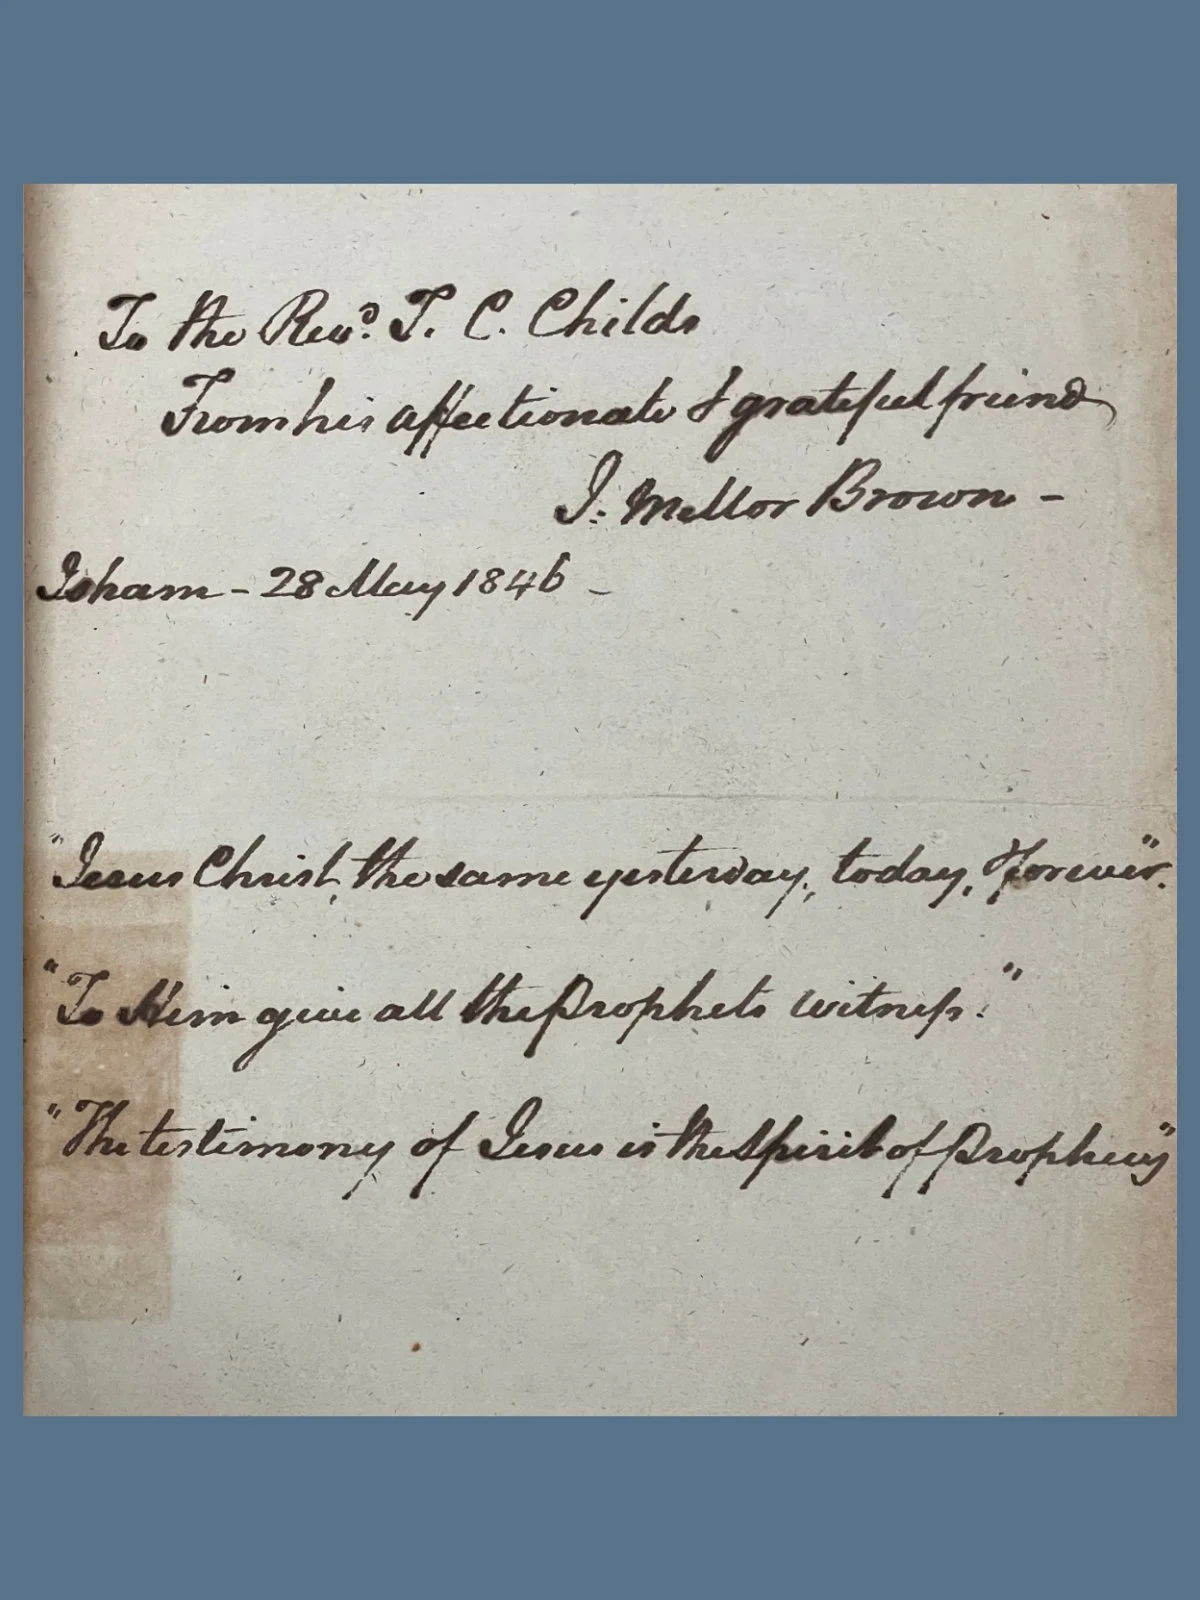 To the Revd. T. C. Childs
From his affectionate & grateful friend
J: Mellor Brown -
Isham - 28 May 1846 -
"Jesus Christ, the same yesterday, today, & forever".
"To Him give all the Prophets witness."
"The testimony of Jesus is the Spirit of Prophecy"